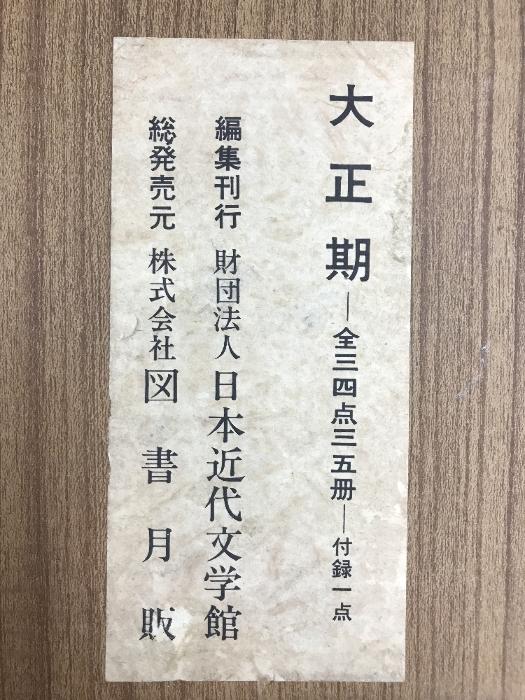 大正期―全三四点三五冊―付録一点
編集刊行 財団法人日本近代文学館
総発売元 株式会社図書月販